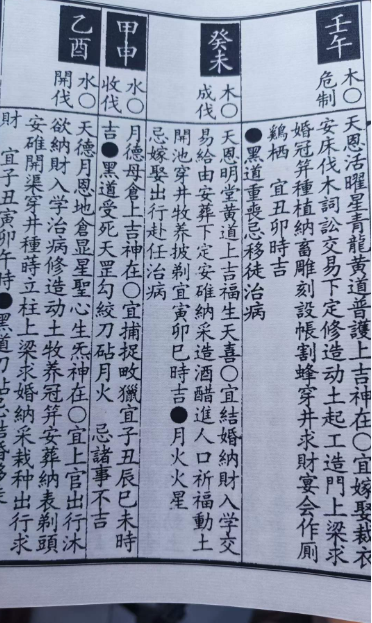 壬午
木○
危制
天恩活曜星青龍黃道普護上吉神在○宜嫁娶裁衣
安床伐木詞訟交易下定修造动土起工造門上梁求
婚冠笄種植納畜雕刻設帳割蜂穿井求財宴会作厠
鷄栖 宜丑卯時吉
●黑道重喪忌移徒治病
癸未
木○
成伐
天恩明堂黃道上吉福生天喜○宜結婚納財入学交
易給由安葬下定安碓納采造酒醋進人口祈福動土
開池穿井牧养披剃宜寅卯巳時吉●月火火星
忌嫁娶出行赴任治病
甲申
水○
收伐
月德母倉上吉神在○宜捕捉畋獵宜子丑辰巳未時
吉●黑道受死天罡勾絞刀砧月火 忌諸事不吉
乙酉
水○
開伐
天德月恩地倉显星聖心生炁神在○宜上官出行沐
欲納財入学治病修造动土牧养冠笄安葬納表剃頭
安碓開渠穿井種蒔立柱上梁求婚納采栽种出行求
財 宜子丑寅卯午時●黑道刀砧忌結婚移